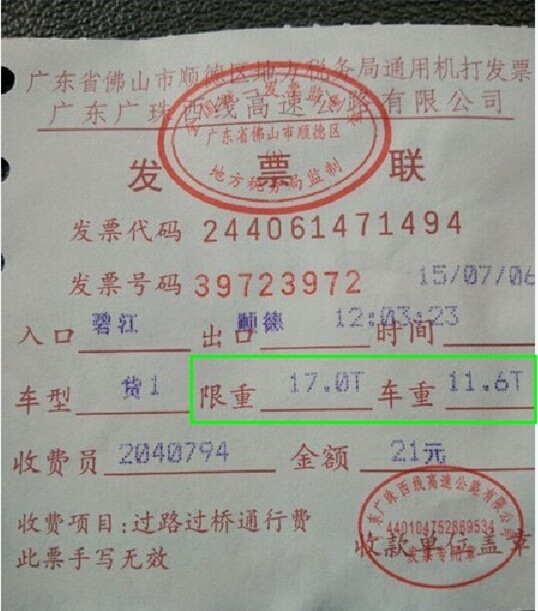 广东省佛山市顺德区地方税务局通用机打发票
广东广珠西线高速公路有限公司
全国统一发票监制章
广东省佛山市顺德区
地方税务局监制
发票联
发票代码 244061471494
发票号码 39723972 15/07/06
入口 碧江 出口 顺德 12:03:23 时间
车型 货1 限重 17.0T 车重 11.6T
收费员 2040794 金额 21元
收费项目:过路过桥通行费
此票手写无效
收款单位盖章
广东广珠西线高速公路有限公司
440104752869534
发票专用章